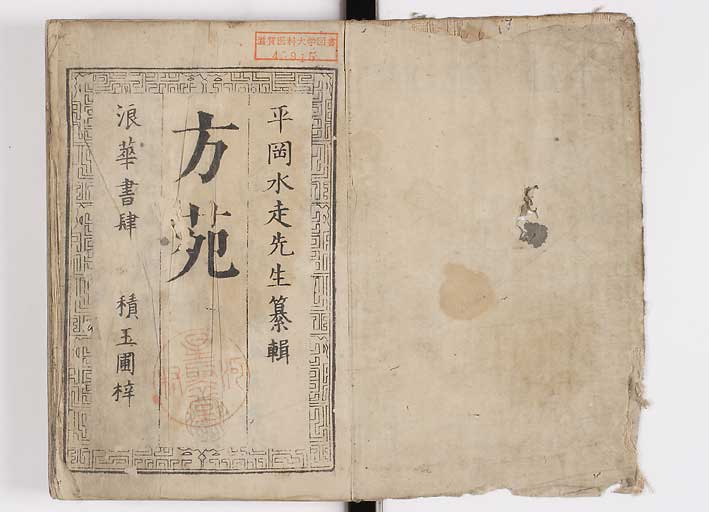 滋賀医科大学図書
平岡水走先生纂輯
方苑
浪華書肆 積玉圃梓